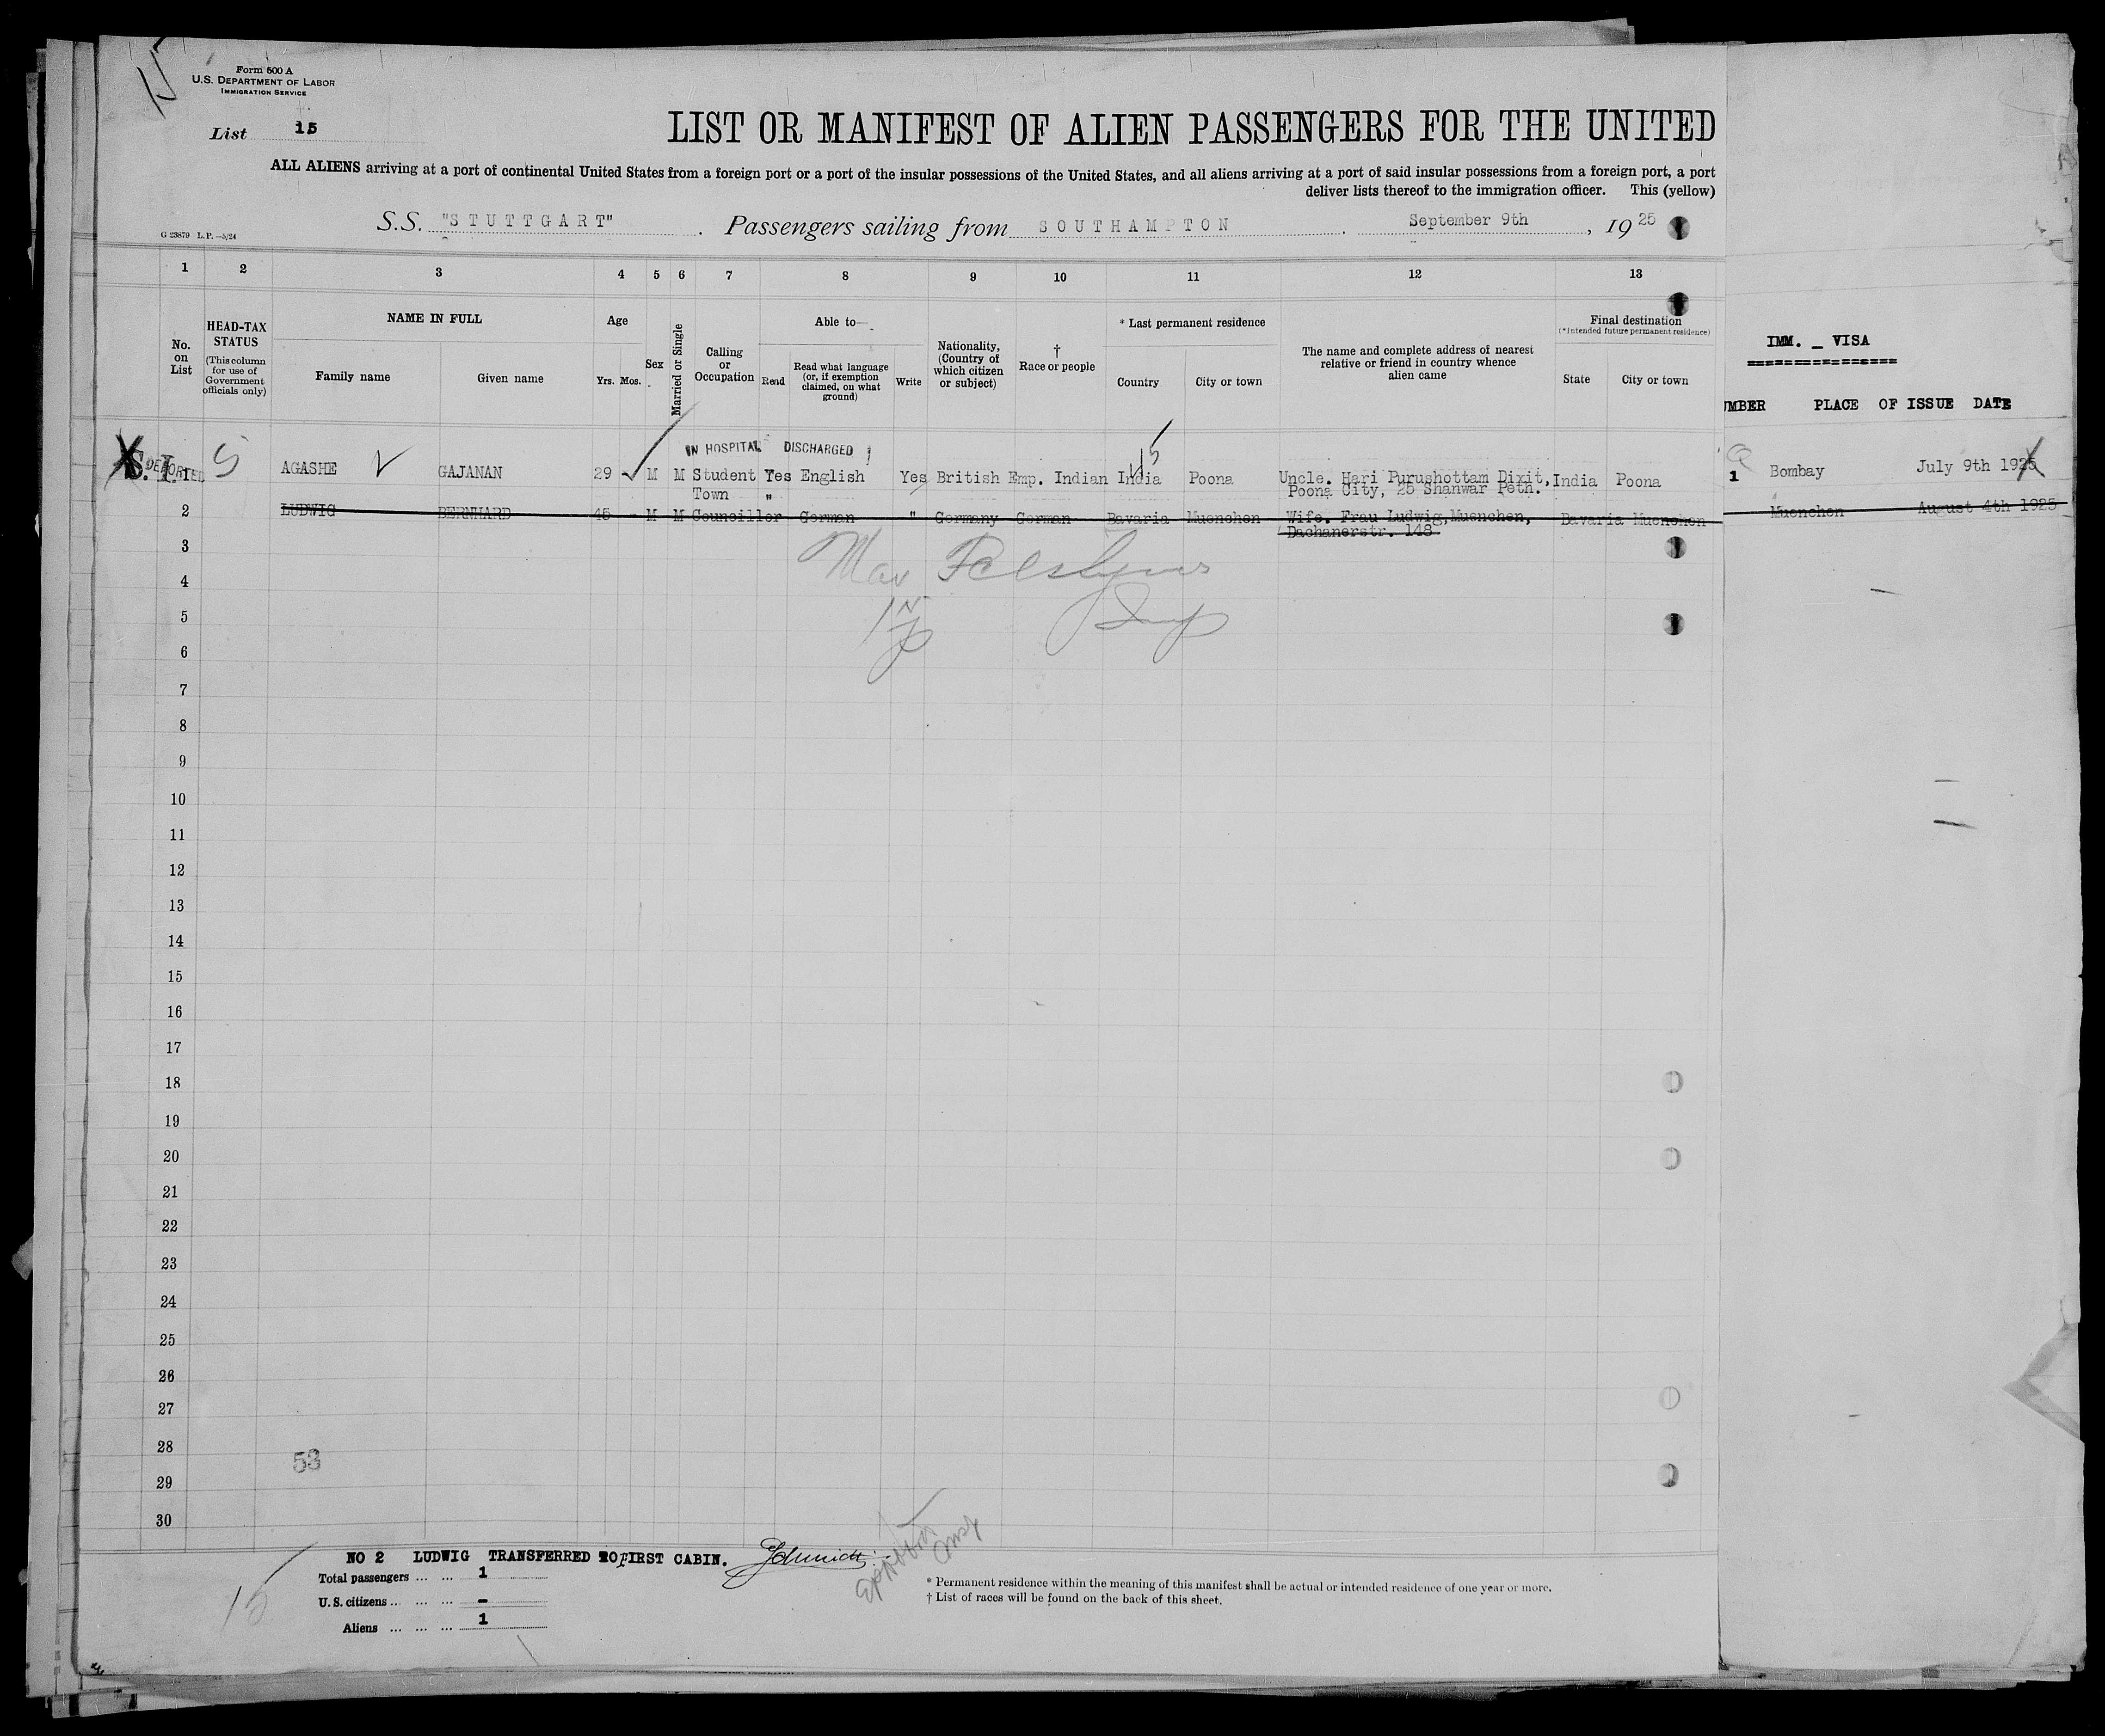 15
Form 500 A
U.S. DEPARTMENT OF LABOR
IMMIGRATION SERVICE
List 15
LIST OR MANIFEST OF ALIEN PASSENGERS FOR THE UNITED
ALL ALIENS arriving at a port of continental United States from a foreign port or a port of the insular possessions of the United States, and all aliens arriving at a port of said insular possessions from a foreign port, a port
deliver lists thereof to the immigration officer. This (yellow)
S.S. "STUTTGART". Passengers sailing from SOUTHAMPTON. September 9th, 1925
G 23879 L.P.—5/24
1 2 3 4 5 6 7 8 9 10 11 12 13
No. on List
HEAD-TAX STATUS
(This column for use of Government officials only)
NAME IN FULL
Family name Given name
Age
Yrs. Mos.
Sex
Married or Single
Calling or Occupation
Able to—
Read
Read what language (or, if exemption claimed, on what ground)
Write
Nationality, (Country of which citizen or subject)
† Race or people
* Last permanent residence
Country City or town
The name and complete address of nearest relative or friend in country whence alien came
Final destination
(*Intended future permanent residence)
State City or town
IMM. _ VISA
===============
UMBER PLACE OF ISSUE DATE
IN HOSPITAL DISCHARGED
S. I. DEPORTED
1 AGASHE GAJANAN 29 M M Student Yes English Yes British Emp. Indian India Poona Uncle. Hari Purushottam Dixit, India Poona 1 Bombay July 9th 1925
Poona City, 25 Shanwar Peth.
Town "
2 LUDWIG BERNHARD 45 - M M Councillor German " Germany German Bavaria Muenchen Wife. Frau Ludwig, Muenchen, Bavaria Muenchen Muenchen August 4th 1925
Dachanerstr. 148
3
4
5
6
7
8
9
10
11
12
13
14
15
16
17
18
19
20
21
22
23
24
25
26
27
28
53
29
30
NO 2 LUDWIG TRANSFERRED TO FIRST CABIN. Schmidt
Total passengers ... ... 1
U.S. citizens ... ... ... -
Aliens ... ... ... 1
15
* Permanent residence within the meaning of this manifest shall be actual or intended residence of one year or more.
† List of races will be found on the back of this sheet.